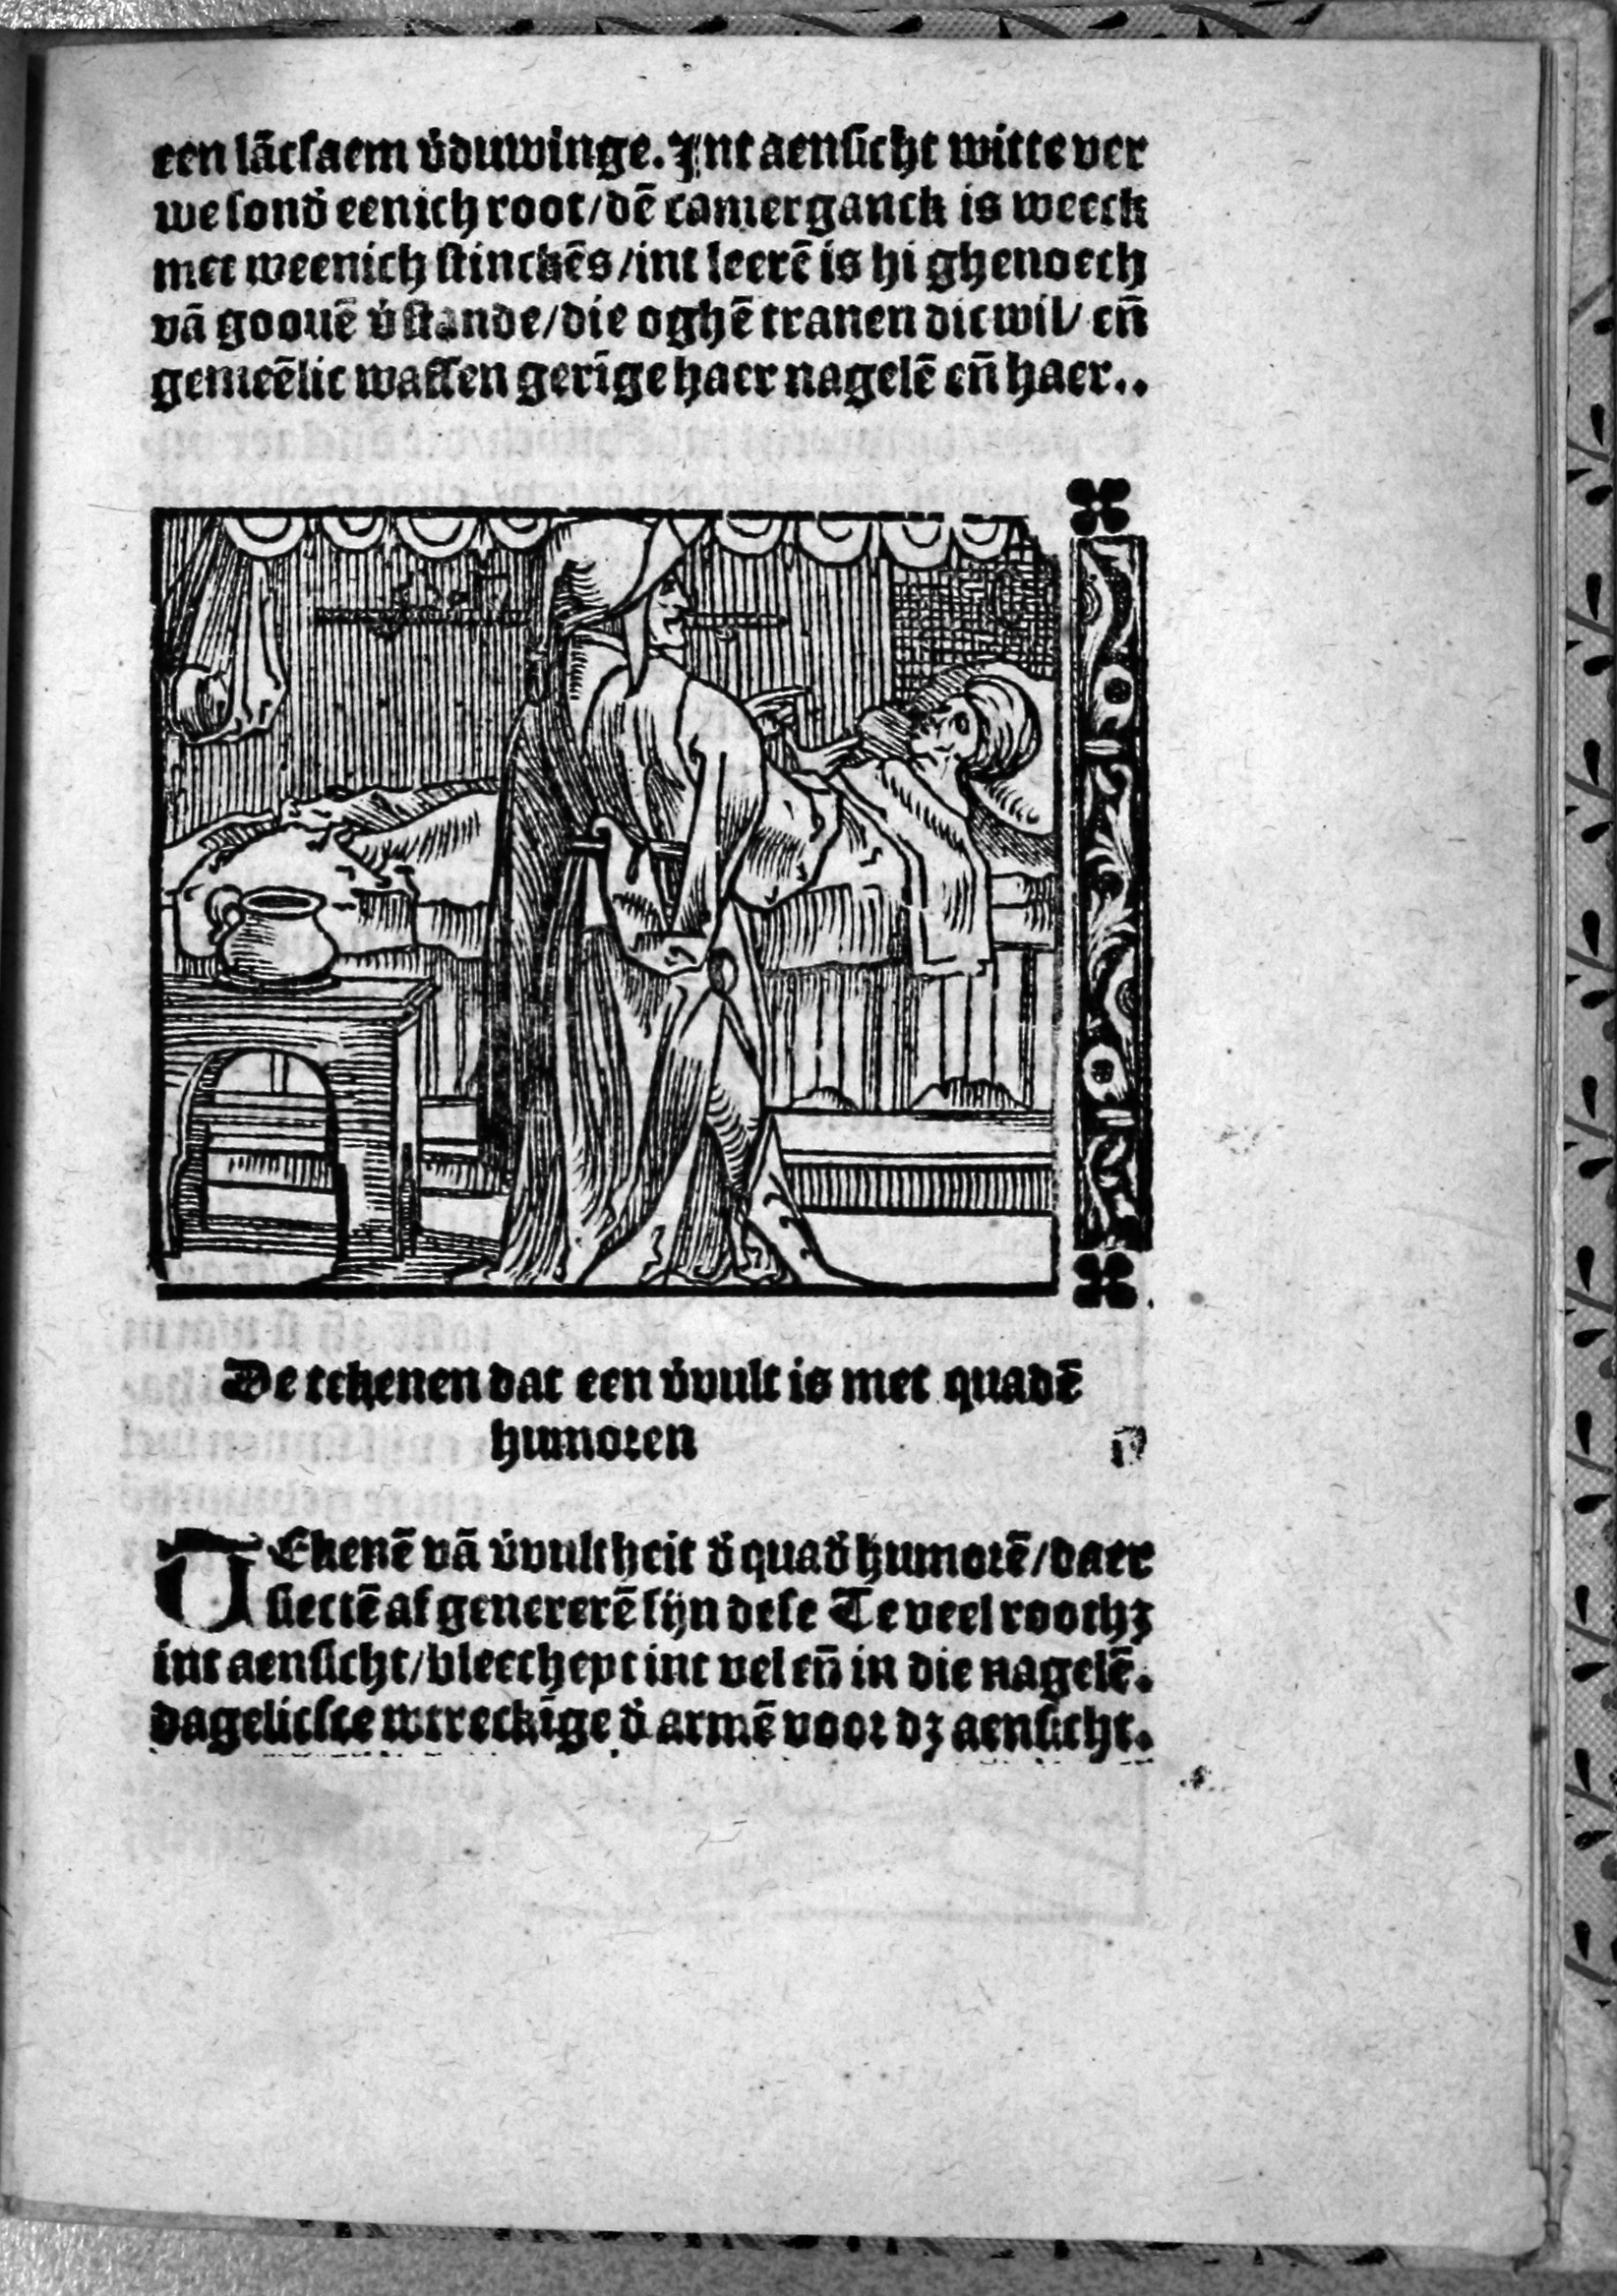 een lãcſaem v̄duwinge. Int aenſicht witte ver
we ſond̄ eenich root/dẽ camerganck is weeck
met weenich ſtinckẽs/int leerẽ is hi ghenoech
vã goouẽ v̄ſtande/die oghẽ tranen dicwil/ eñ
gemeẽlic waſſen gerĩge haer nagelẽ eñ haer..
De tekenen dat een v̄vult is met quadẽ
humoren
TEkenẽ vã v̄vultheit d̄ quad̄ humorẽ/daer
ſiectẽ af genererẽ ſijn deſe Te veel roothꝫ
int aenſicht/bleecheyt int vel eñ in die nagelẽ.
dagelicſce wtreckĩge d̄ armẽ voor dꝫ aenſicht.